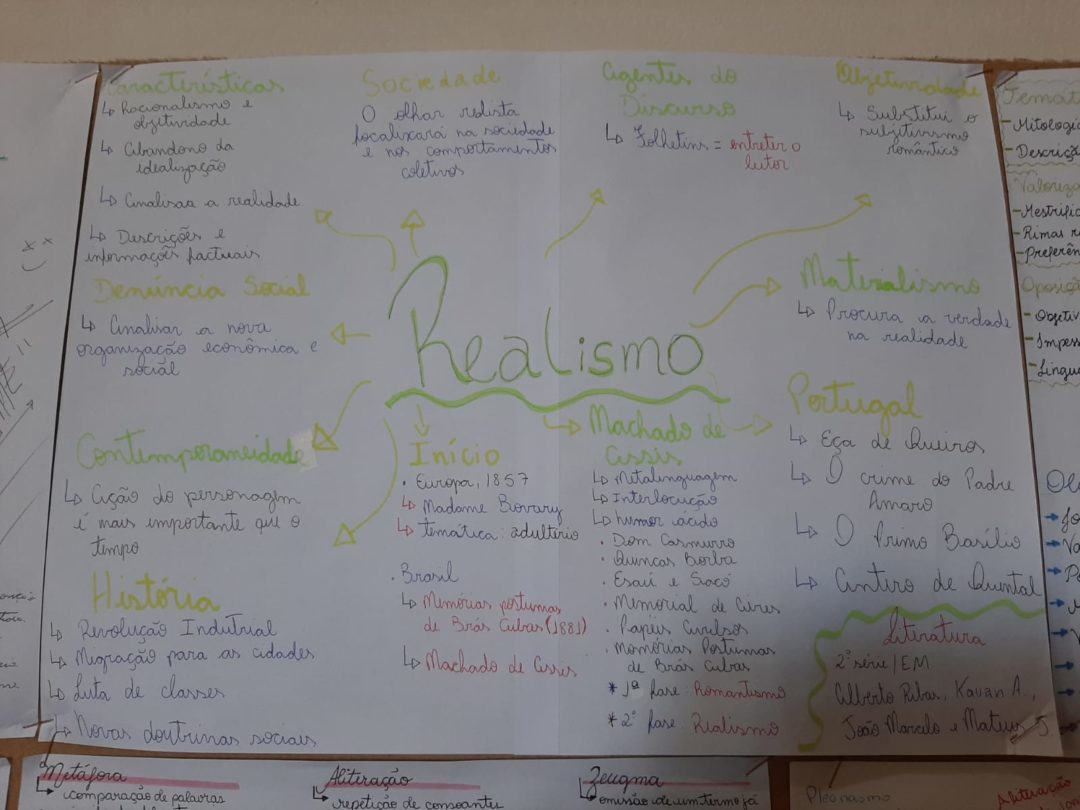 Características
↳ Racionalismo e
objetividade
↳ Abandono da
idealização
↳ Analisar a realidade
↳ Descrições e
informações factuais
Denúncia Social
↳ Analisar a nova
organização econômica e
social
Contemporaneidade
↳ Ação do personagem
é mais importante que o
tempo
História
↳ Revolução Indutrial
↳ Migração para as cidades
↳ Luta de classes
↳ Novas doutrinas sociais
Sociedade
O olhar realista
focalizará na sociedade
e nos comportamentos
coletivos
Agentes do
Discurso
↳ Folhetins = entreter o
leitor
Objetividade
↳ Substitui o
subjetivismo
romântico
Realismo
Materialismo
↳ Procura a verdade
na realidade
Início
• Europa, 1857
↳ Madame Bovary
↳ temática: adultério
• Brasil
↳ Memórias póstumas
de Brás Cubas (1881)
↳ Machado de Assis
Machado de
Assis
↳ Metalinguagem
↳ Interlocução
↳ humor ácido
• Dom Casmurro
• Quincas Borba
• Esaú e Jacó
• Memorial de Aires
• Papéis Avulsos
• Memórias Postumas
de Brás Cubas
* 1ª fase: Romantismo
* 2ª fase: Realismo
Portugal
↳ Eça de Queiros
↳ O crime do Padre
Amaro
↳ O Primo Basílio
↳ Antero de Quental
Literatura
2ª série/EM
Alberto Ribas, Kauan A.,
João Marcelo e Mateus J.
- Mitologia
- Descrição
- Rimas
Metáfora
↳ comparação de palavras
Aliteração
↳ repetição de consoantes
Zeugma
↳ omissão de um termo já
Pleonasmo
Aliteração